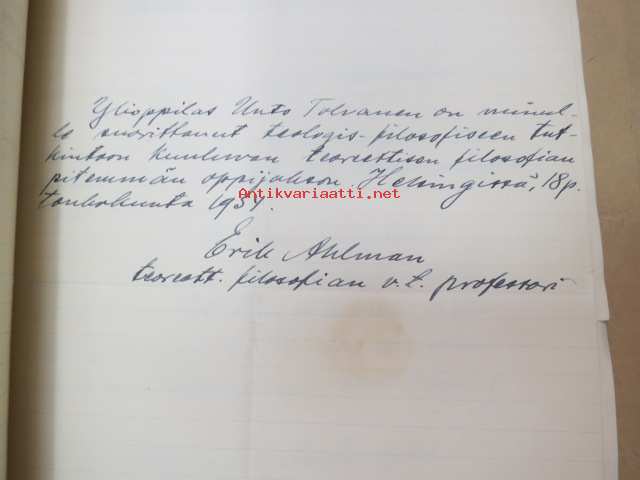 Ylioppilas Unto Tolvanen on minul-
le suorittanut teologis-filosofiseen tut-
kintoon kuuluvan teoreettisen filosofian
pitemmän oppijakson. Helsingissä, 18 p.
Antikvariaatti.net
toukokuuta 1934.
Erik Ahlman
teoreett. filosofian v.t. professori